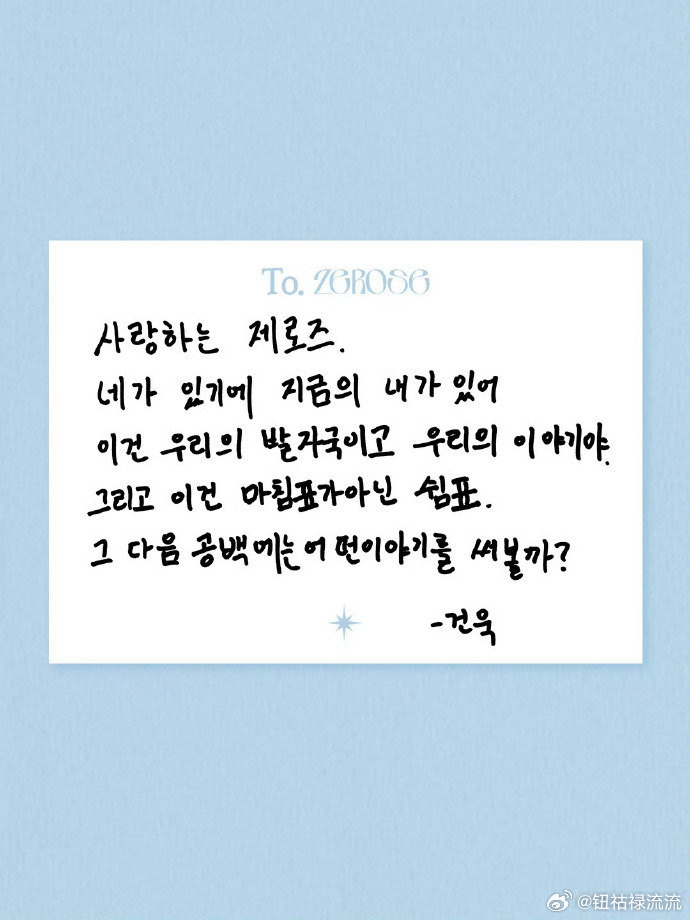 To. ZEROSE
사랑하는 제로즈.
네가 있기에 지금의 내가 있어
이건 우리의 발자국이고 우리의 이야기야.
그리고 이건 마침표가아닌 쉼표.
그 다음 공백에는어떤이야기를 써볼까?
-건욱
@钮祜禄流流